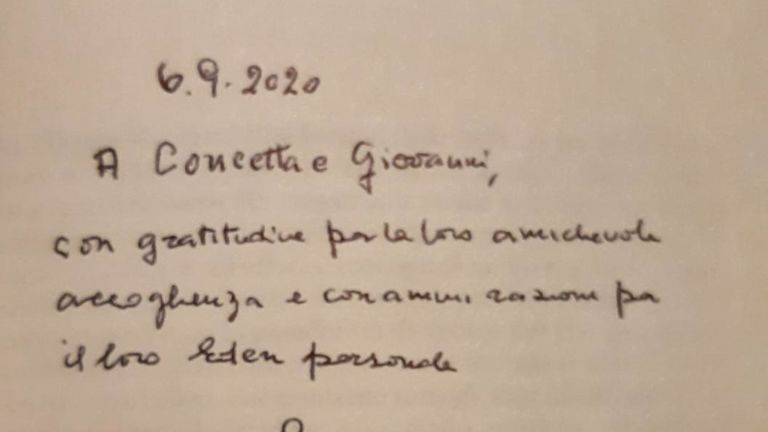 6.9.2020
A Concetta e Giovanni,
con gratitudine per la loro amichevole
accoglienza e con ammirazione per
il loro Eden personale